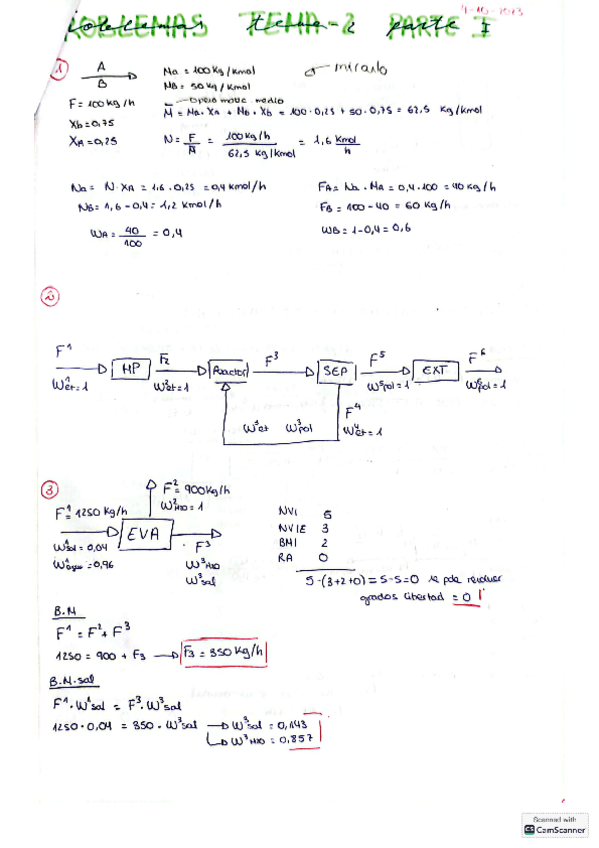 4-10-2023
PROBLEMAS TEMA-2 PARTE I
1
A
B
F = 100 kg/h
Xb = 0,75
XA = 0,25
Ma = 100 kg/kmol
MB = 50 kg/kmol
M = Ma · XA + Mb · Xb = 100 · 0,25 + 50 · 0,75 = 62,5 kg/kmol
N = F/M = 100 kg/h / 62,5 kg/kmol = 1,6 kmol/h
Na = N · XA = 1,6 · 0,25 = 0,4 kmol/h
NB = 1,6 - 0,4 = 1,2 kmol/h
WA = 40/100 = 0,4
FA = Na · MA = 0,4 · 100 = 40 kg/h
FB = 100 - 40 = 60 kg/h
WB = 1 - 0,4 = 0,6
2
F¹ HP F2 Reactor F³ SEP F⁵ EXT F⁶
W¹et = 1 W²et = 1 W⁵pol = 1 W⁶pol = 1
F⁴
W³et W³pol W⁴et = 1
3
F² = 900 kg/h
W²H2O = 1
F¹ = 1250 kg/h
EVA
W¹sal = 0,04
W¹agua = 0,96
F³
W³H2O
W³sal
NVI 5
NVIE 3
BMI 2
RA 0
5 - (3+2+0) = 5-5 = 0 se pde resolver
grados libertad = 0
B.M
F¹ = F² + F³
1250 = 900 + F3 → F3 = 350 kg/h
B.M.sal
F¹ · W¹sal = F³ · W³sal
1250 · 0,04 = 350 · W³sal → W³sal = 0,143
W³H2O = 0,857
Scanned with
CS CamScanner